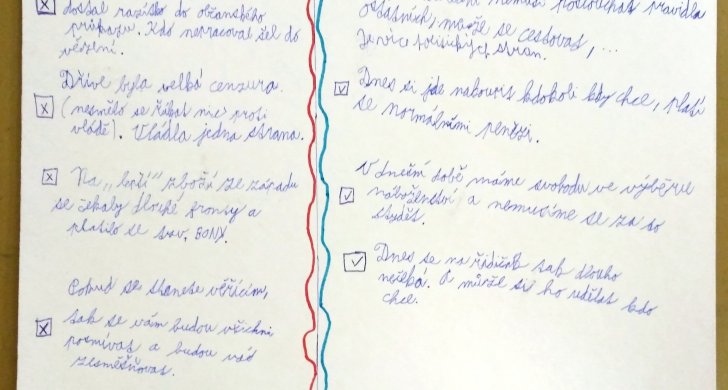 dostal razítko do občanského
průkazu. Kdo nepracoval šel do
vězení.
Dříve byla velká cenzura.
(nesmělo se říkat nic proti
vládě). Vládla jedna strana.
Na „lepší" zboží ze západu
se čekaly dlouhé fronty a
platilo se tzv. BONY.
Pokud se stanete věřícím,
tak se vám budou všichni
posmívat a budou vás
zesměšňovat.
nemusí poslouchat pravidla
ostatních, může se cestovat, ...
Je více politických stran.
Dnes si jde nakoupit kdokoli kdy chce, platí
se normálními penězi.
V dnešní době máme svobodu ve výběru
náboženství a nemusíme se za to
stydět.
Dnes se na řidičák tak dlouho
nečeká. A může si ho udělat kdo
chce.